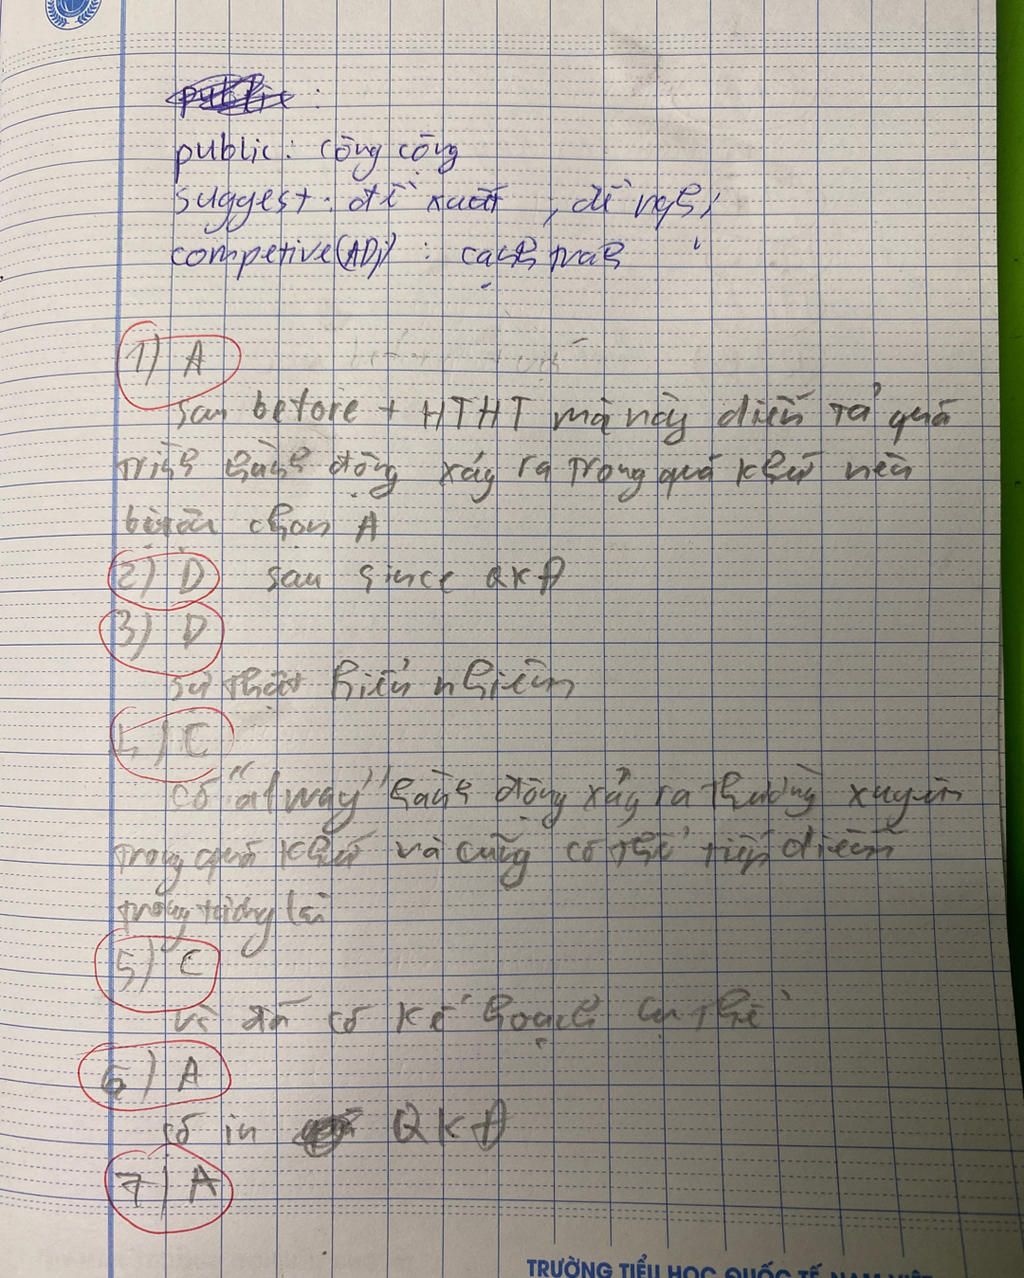 public:
public: công cộng
suggest: đề xuất, đề nghị
competive (ADj): cạnh tranh
1) A
sau before + HTHT mà này diễn tả quá
trình hành động xảy ra trong quá khứ nên
chọn A
2) D sau since QKĐ
3) D
sự thật hiển nhiên
4) C
có "alway" hành động xảy ra thường xuyên
trong quá khứ và cũng có thể tiếp diễn
trong tương lai
5) C
vì đã có kế hoạch cụ thể
6) A
có in QKĐ
7) A
TRƯỜNG TIỂU HỌC QUỐC TẾ NAM VIỆT